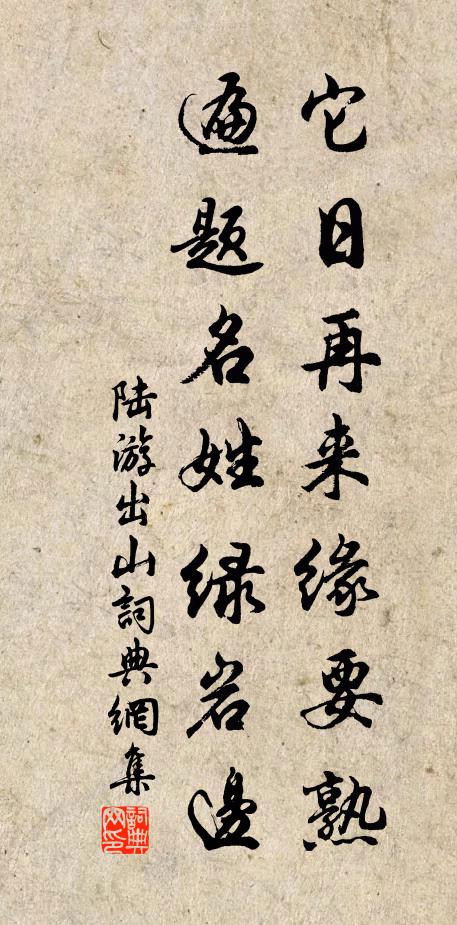 它日再来缘要熟
遍题名姓绿岩邊
陆游出山詞典網集
詞典网印